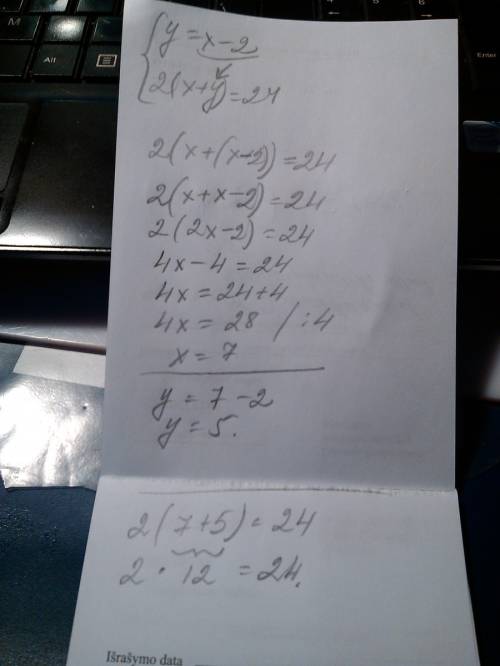 { y = x - 2
2(x+y) = 24
2(x+(x-2)) = 24
2(x+x-2) = 24
2(2x-2) = 24
4x - 4 = 24
4x = 24+4
4x = 28 / :4
x = 7
y = 7 - 2
y = 5.
2(7+5) = 24
2 · 12 = 24.
Išrašymo data
Alt
Enter